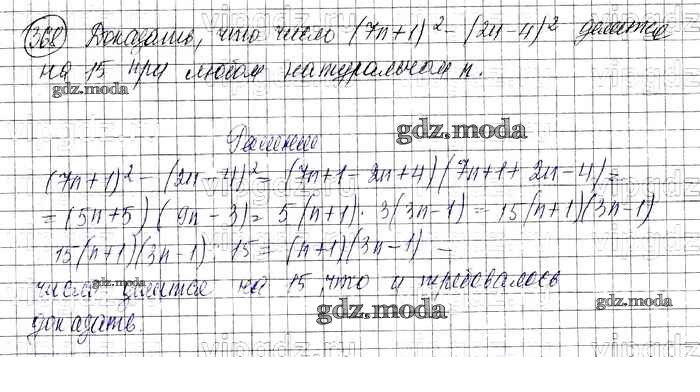 368 Доказать, что число (7n+1)² - (2n-4)² делится
на 15 при любом натуральном n.
gdz.moda
Решение
gdz.moda
(7n+1)² - (2n-4)² = (7n+1-2n+4)(7n+1+2n-4) =
= (5n+5)(9n-3) = 5(n+1)·3(3n-1) = 15(n+1)(3n-1)
15(n+1)(3n-1) : 15 = (n+1)(3n-1) –
gdz.moda
число делится на 15, что и требовалось
gdz.moda
gdz.moda
доказать.
vipgdz.ru